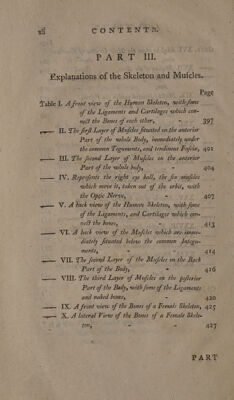 28 CONTENTS.
PART III.
Explanations of the Skeleton and Muſcles.
Page
Table I. A front view of the Human Skeleton, with ſome
of the Ligaments and Cartilages which con-
nect the Bones of each other, - 397
—— II. The firſt Layer of Muſcles ſituated on the anterior
Part of the whole Body, immediately under
the common Teguments, and tendinous Faſciæ, 401
—— III. The ſecond Layer of Muſcles on the anterior
Part of the whole body, - 404
—— IV. Repreſents the right eye ball, the ſix muſcles
which move it, taken out of the orbit, with
the Optic Nerve, - - 407
—— V. A back view of the Human Skeleton, with ſome
of the Ligaments, and Cartilages which con-
nect the bones, - - 413
—— VI. A back view of the Muſcles which are imme-
diately ſituated below the common Integu-
ments, - - 414
—— VII. The ſecond Layer of Muſcles on the Back
Part of the Body, - - 416
—— VIII. The third Layer of Muſcles on the poſterior
Part of the Body, with ſome of the Ligaments
and naked bones, - 420
—— IX. A front view of the Bones of a Female Skeleton, 425
—— X. A lateral View of the Bones of a Female Skele-
ton, - - 427
PART